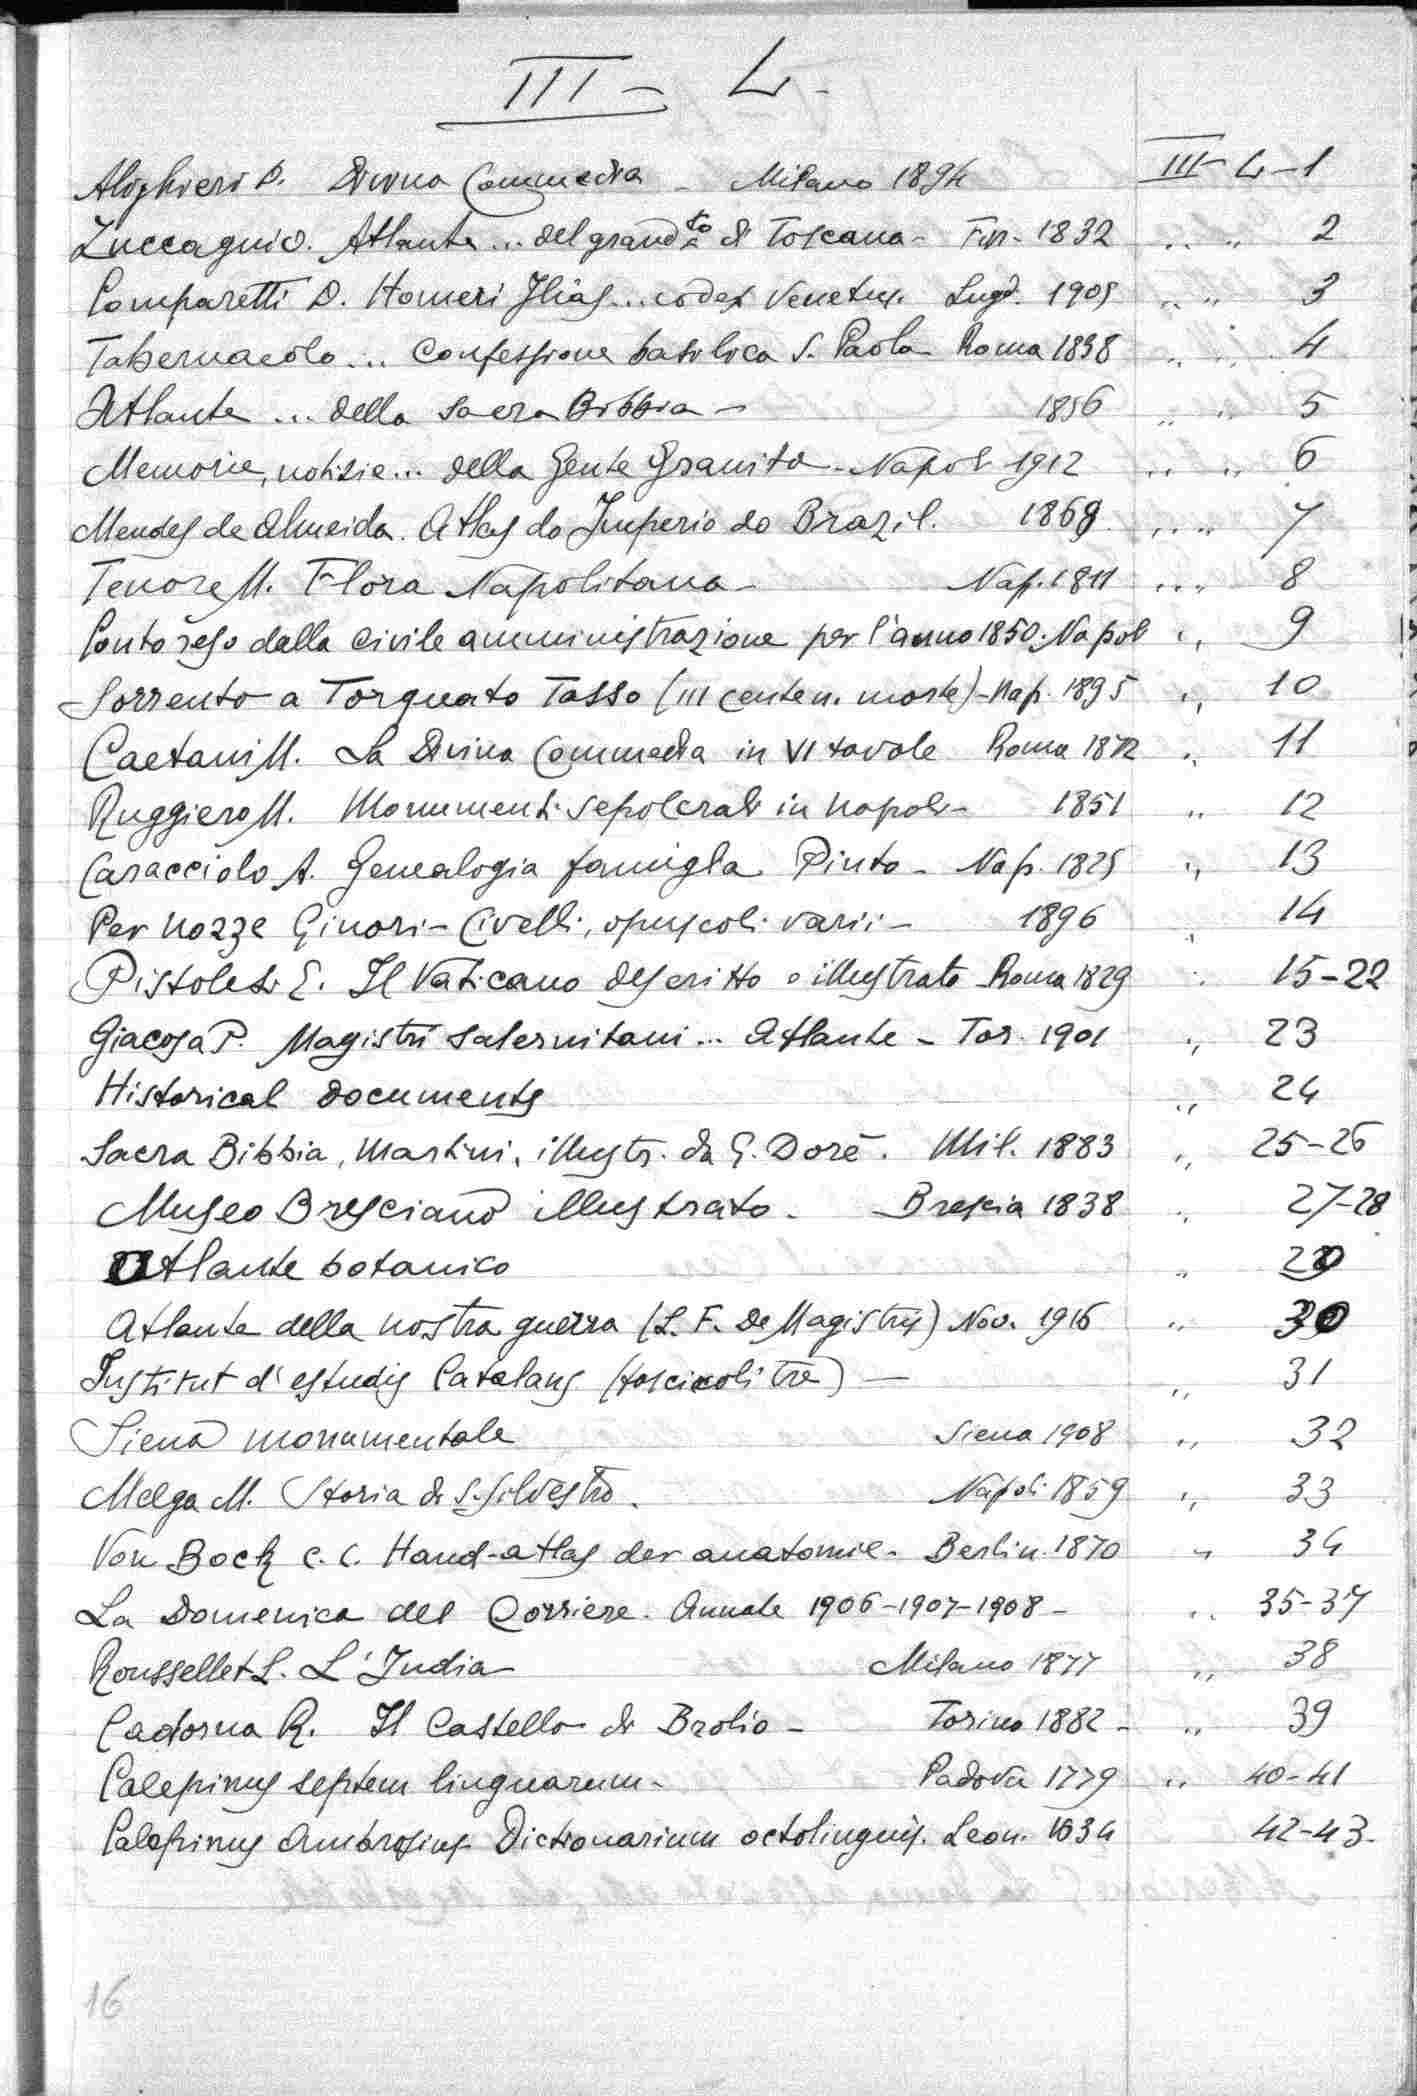 III - L -
Alighieri D. Divina Commedia - Milano 1894 III - L - 1
Zuccagni O. Atlante ... del grand.to di Toscana - Fir. 1832 " " 2
Comparetti D. Homeri Ilias ... codex Venetus. Lugd. 1901 " " 3
Tabernacolo ... Confessione basilica S. Paolo Roma 1838 " " 4
Atlante ... della Sacra Bibbia - 1856 " " 5
Memorie, notizie ... della Gente Granito - Napoli 1912 " " 6
Mendes de Almeida. Atlas do Imperio do Brazil. 1868 " " 7
Tenore M. Flora Napolitana - Nap. 1811 " " 8
Conto reso dalla civile amministrazione per l'anno 1850. Napoli " 9
Sorrento a Torquato Tasso (III centen. morte) - Nap. 1895 " 10
Caetani M. La Divina Commedia in VI tavole Roma 1872 " 11
Ruggiero M. Monumenti sepolcrali in Napoli - 1851 " 12
Caracciolo A. Genealogia famiglia Pinto - Nap. 1825 " 13
Per nozze Ginori - Civelli, opuscoli varii - 1896 " 14
Pistolesi E. Il Vaticano descritto e illustrato Roma 1829 " 15-22
Giacosa P. Magistri Salernitani ... Atlante - Tor. 1901 " 23
Historical documents " 24
Sacra Bibbia, Martini, illustr. da G. Doré. Mil. 1883 " 25-26
Museo Bresciano illustrato. Brescia 1838 " 27-28
Atlante botanico " 29
Atlante della nostra guerra (L. F. De Magistris) Nov. 1916 " 30
Institut d'estudis Catalans (fascicoli tre) - " 31
Siena monumentale Siena 1908 " 32
Melga M. Storia di S. Silvestro. Napoli 1859 " 33
Von Bock C. C. Hand-atlas der anatomie - Berlin. 1870 " 34
La Domenica del Corriere. Annate 1906-1907-1908 - " 35-37
Rousselet L. L'India Milano 1877 " 38
Cadorna R. Il Castello di Brolio - Torino 1882 - " 39
Calepinus septem linguarum - Padova 1779 " 40-41
Calepinus Ambrosius Dictionarium octolinguis. Leon. 1634 42-43.
16